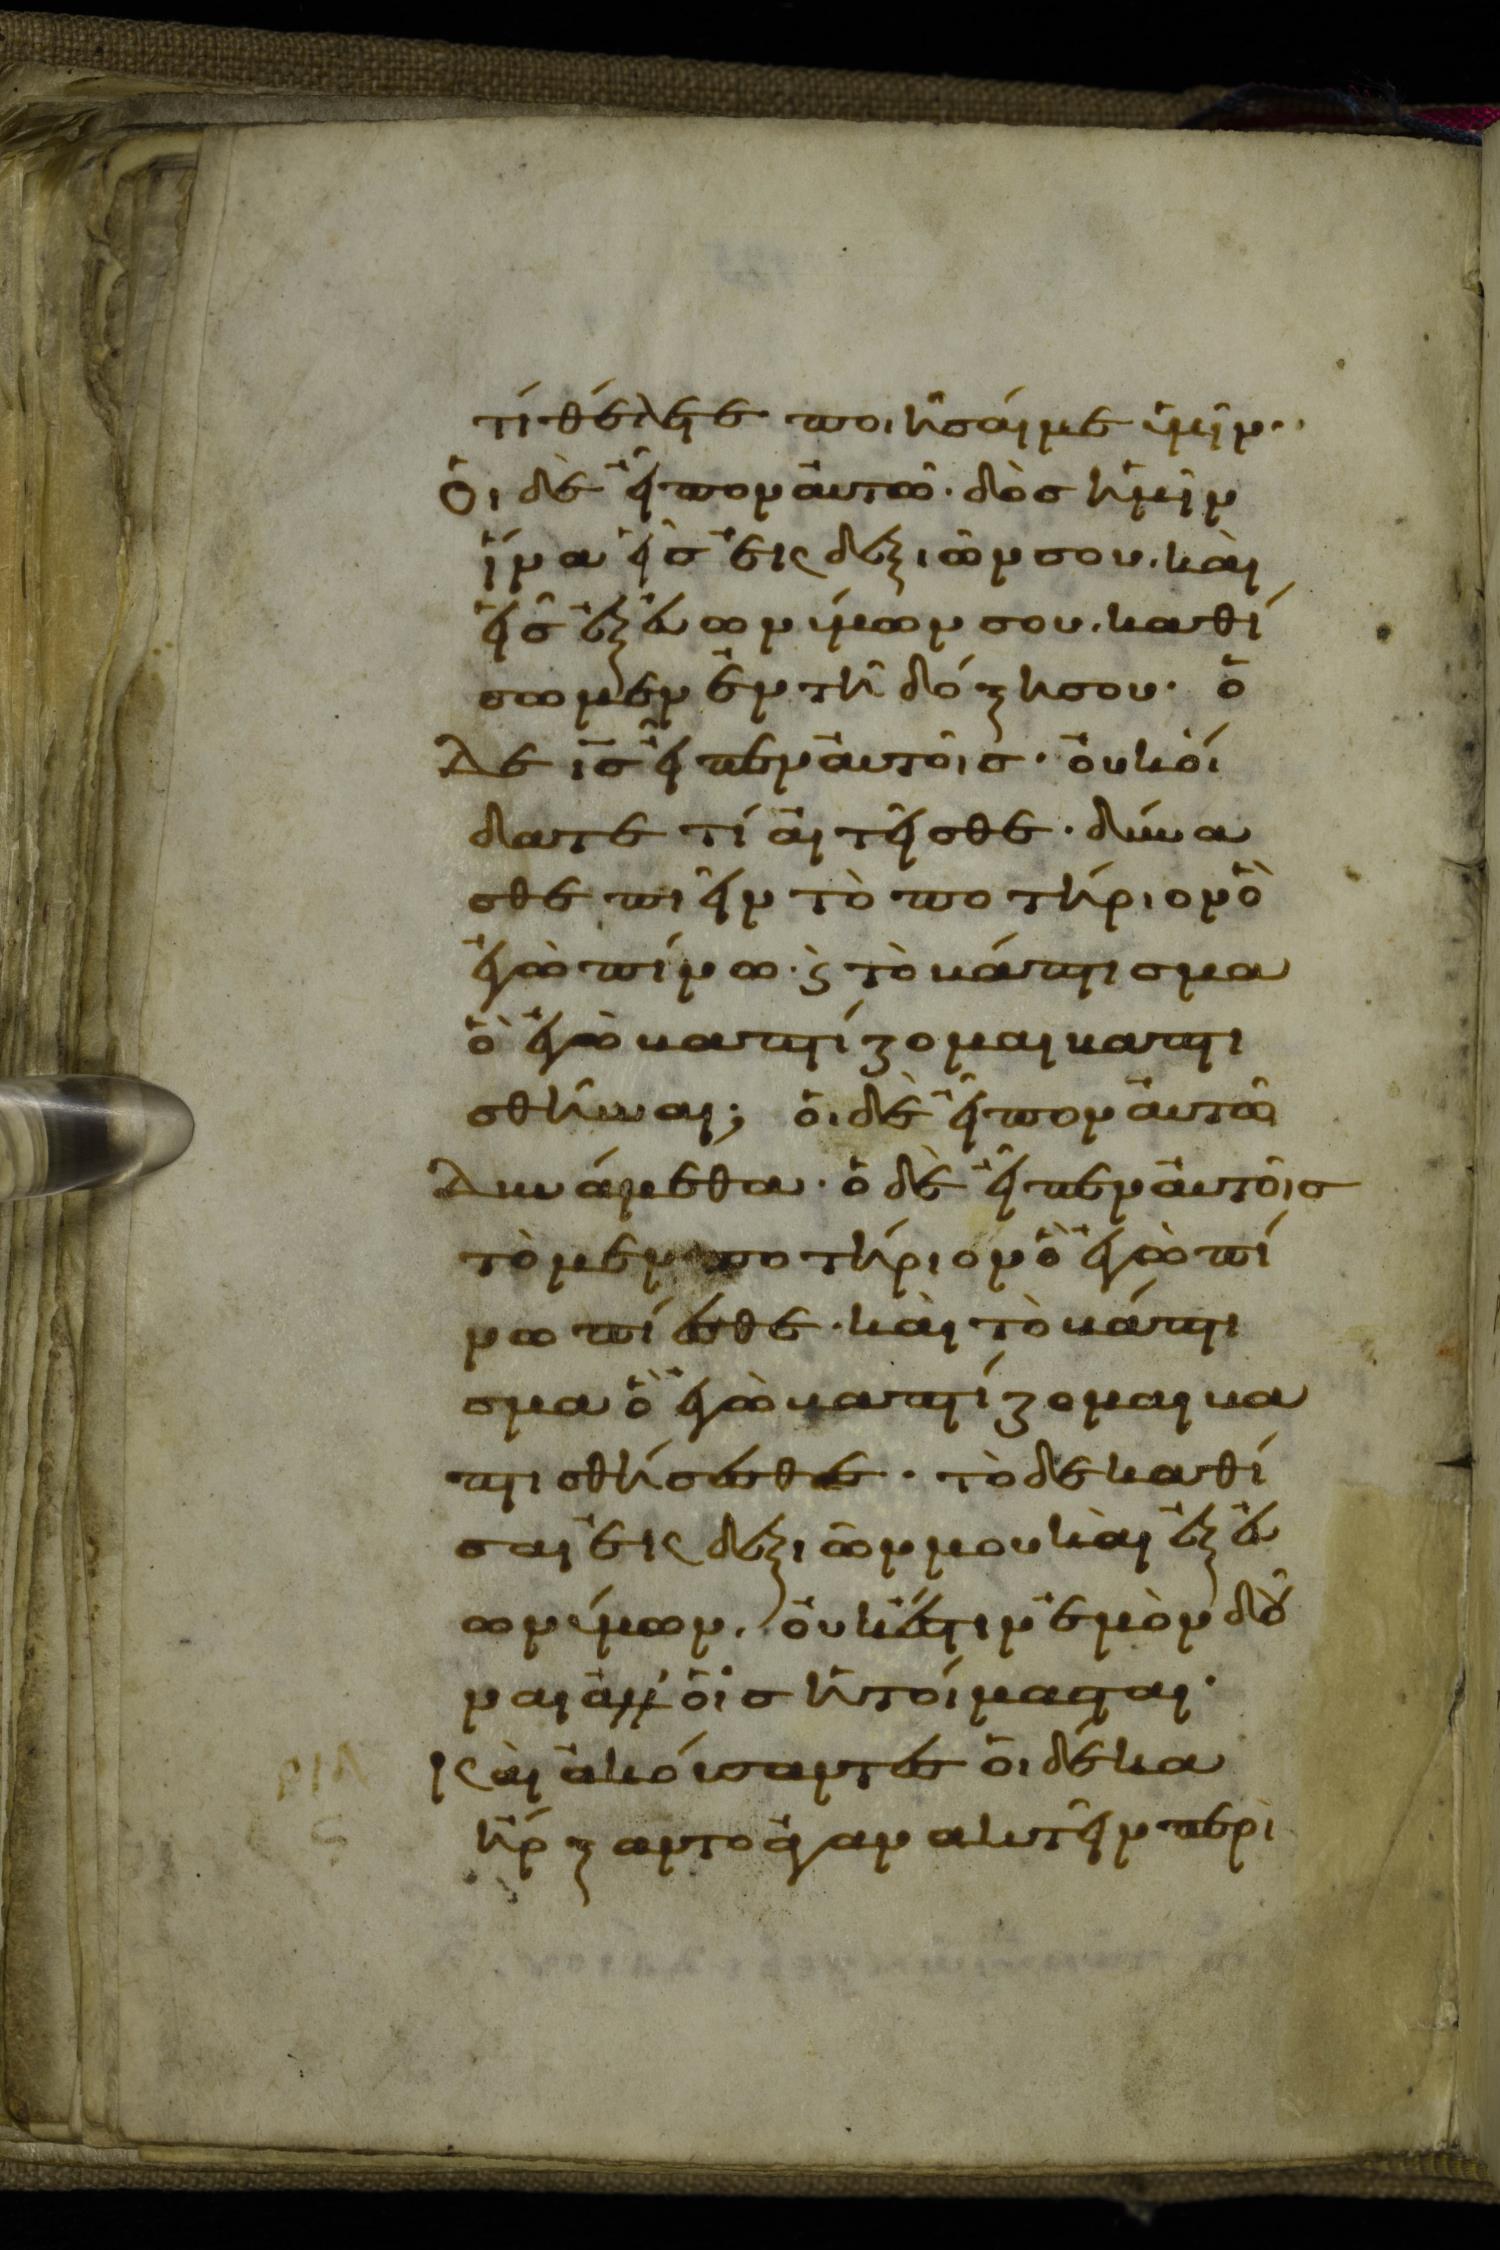 τί θέλετε ποιῆσαί με ὑμῖν·
Οἱ δὲ εἶπον αὐτῶ· δὸσ ἡμῖν
ἵνα εἷσ ἐκ δεξιῶν σου. καὶ
εἷσ ἐξ ἐυωνύμων σου. καθί
σωμεν ἐν τῆ δόξη σου· ὁ
δε ι̅σ̅ εἶπεν αὐτοῖσ· ὀυκ οί
δατε τί αἰτεῖσθε· δύνα
σθε πιεῖν τὸ ποτήριον ὃ
ἐγὼ πίνω. ϗ τὸ βάπτισμα
ὃ ἐγὼ βαπτίζομαι βαπτι
σθῆναι; ὁι δὲ εἶπον αὐτῶ
Δυνάμεθα· ὁ δὲ εἶπεν αὐτοῖσ
τὸ μεν ποτήριον ὃ ἐγὼ πί
νω πίεσθε· καὶ τὸ βάπτι
σμα ὃ ἐγὼ βαπτίζομαι βα
πτισθήσεσθε· τὸ δε καθί
σαι ἐκ δεξιῶν μου καὶ ἐξ ἐυ
ωνύμων. ὀυκ έστιν ἐμὸν δοῦ
ναι ἀλλ' οἷσ ἡτοίμασται·
Καὶ ἀκούσαντεσ ὁι δέκα
ἤρξαντο ἀγανακτεῖν περὶ